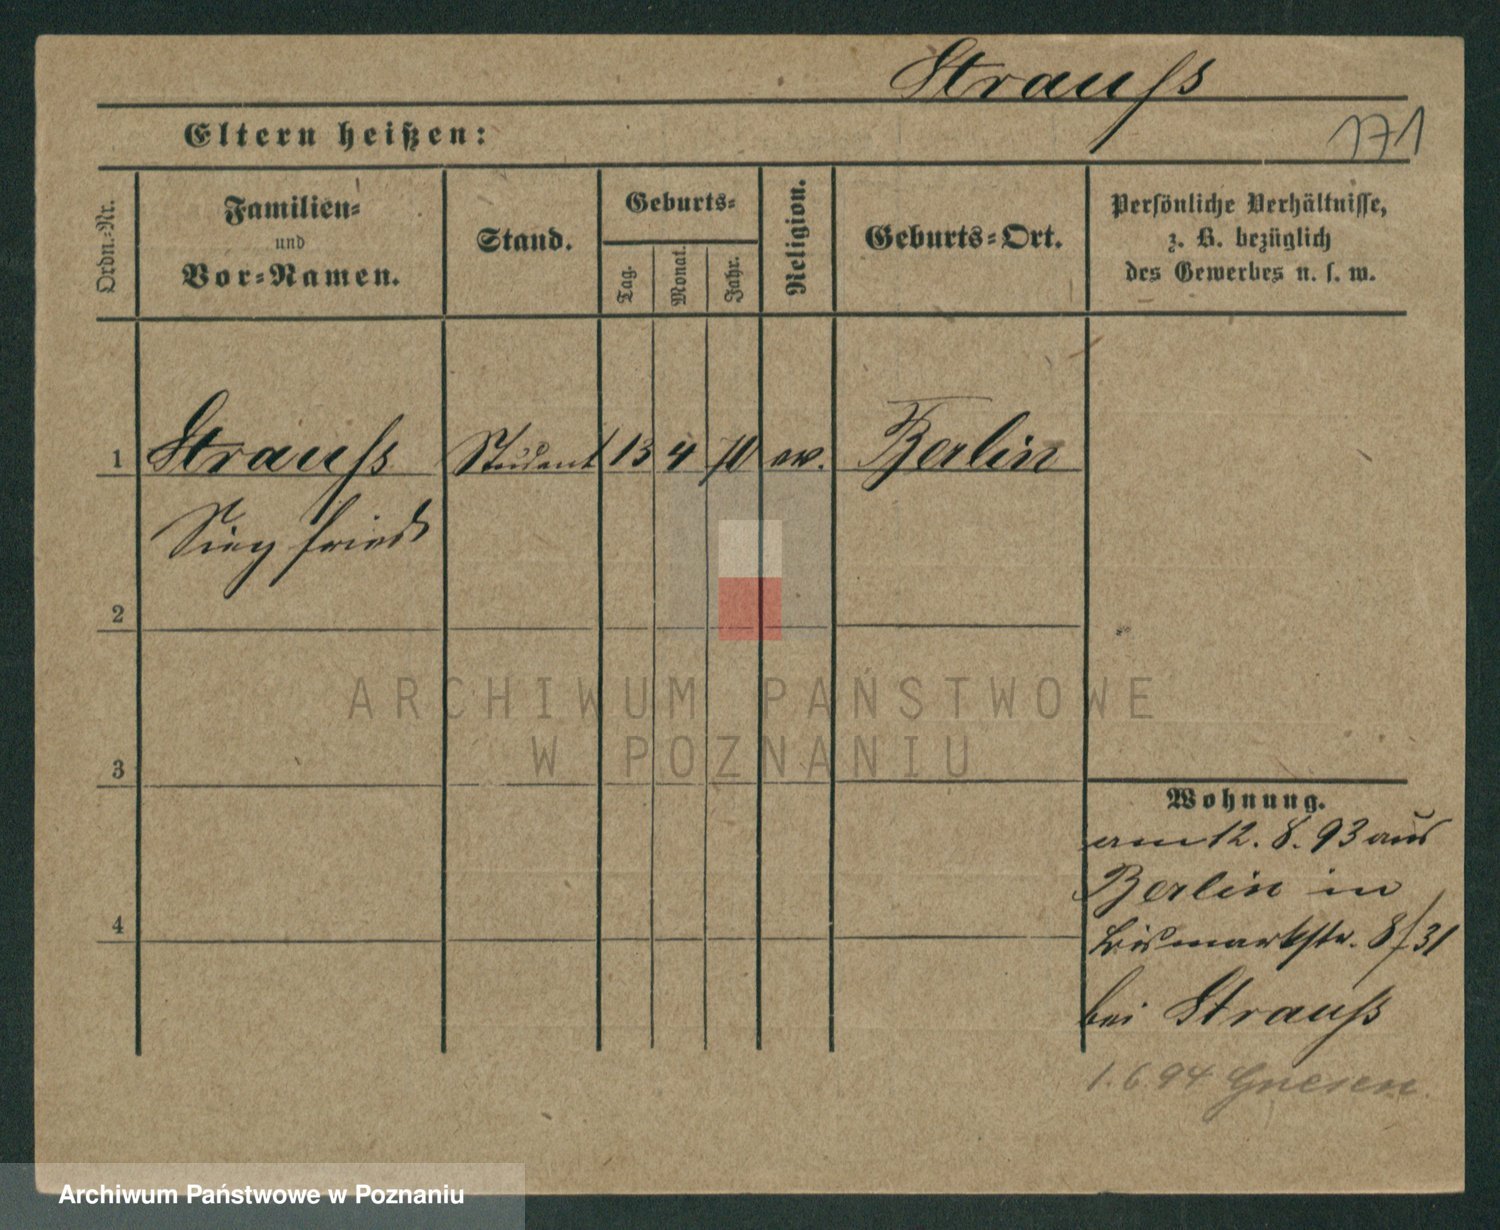 Strauß
Eltern heißen:
171
Ordn.-Nr.
Familien-
und
Vor-Namen.
Stand.
Geburts-
Tag.
Monat.
Jahr.
Religion.
Geburts-Ort.
Persönliche Verhältnisse,
z. B. bezüglich
des Gewerbes u. s. w.
1 Strauß Student 13 4 70 ev. Berlin
Siegfried
2
3
4
Wohnung.
am 12. 8. 93 aus
Berlin in
Bismarkstr. 8/31
bei Strauß
1. 6 94 Gnesen.
ARCHIWUM PAŃSTWOWE
W POZNANIU
Archiwum Państwowe w Poznaniu